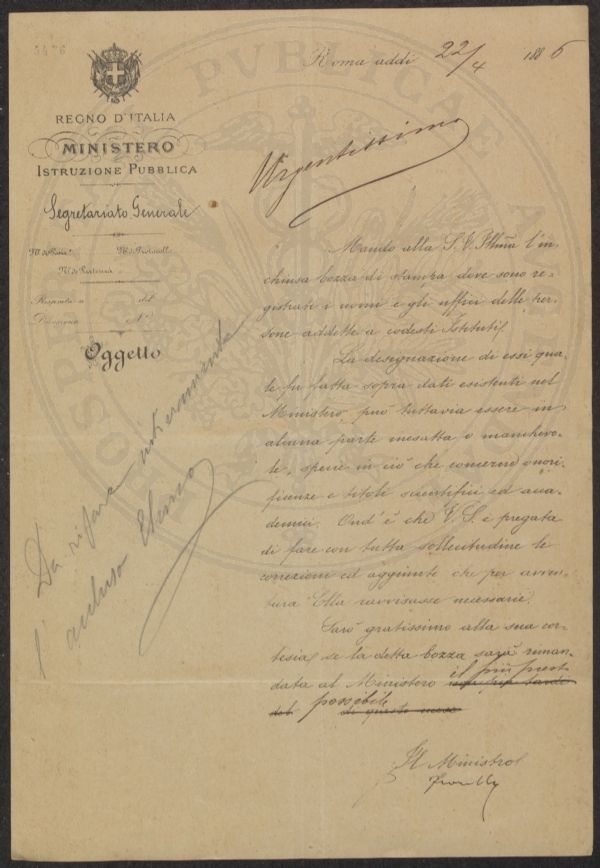 5476
Roma addì 22/4 1886
REGNO D'ITALIA
MINISTERO
ISTRUZIONE PUBBLICA
Segretariato Generale
Urgentissimo
N.º di Protocollo
N.º di Partenza
Risposta a del
Divisione N.º
Oggetto
Mando alla S. V. Illma l'in-
chiusa bozza di stampa dove sono re-
gistrati i nomi e gli uffici delle per-
sone addette a codesti Istituti.
La designazione di essi qua-
le fu fatta sopra dati esistenti nel
Ministero, può tuttavia essere in
alcuna parte inesatta o manchevo-
le, specie in ciò che concerne onori-
ficenze e titoli scientifici ed acca-
demici. Ond'è che V. S. è pregata
di fare con tutta sollecitudine le
correzioni ed aggiunte che per avven-
tura Ella ravvisasse necessarie.
Sarò gratissimo alla sua cor-
tesia, se la detta bozza sarà riman-
data al Ministero il più presto
non più tardi
del possibile
di questo mese
Il Ministro
Da rifare interamente
l'accluso Elenco
PVBLICAE